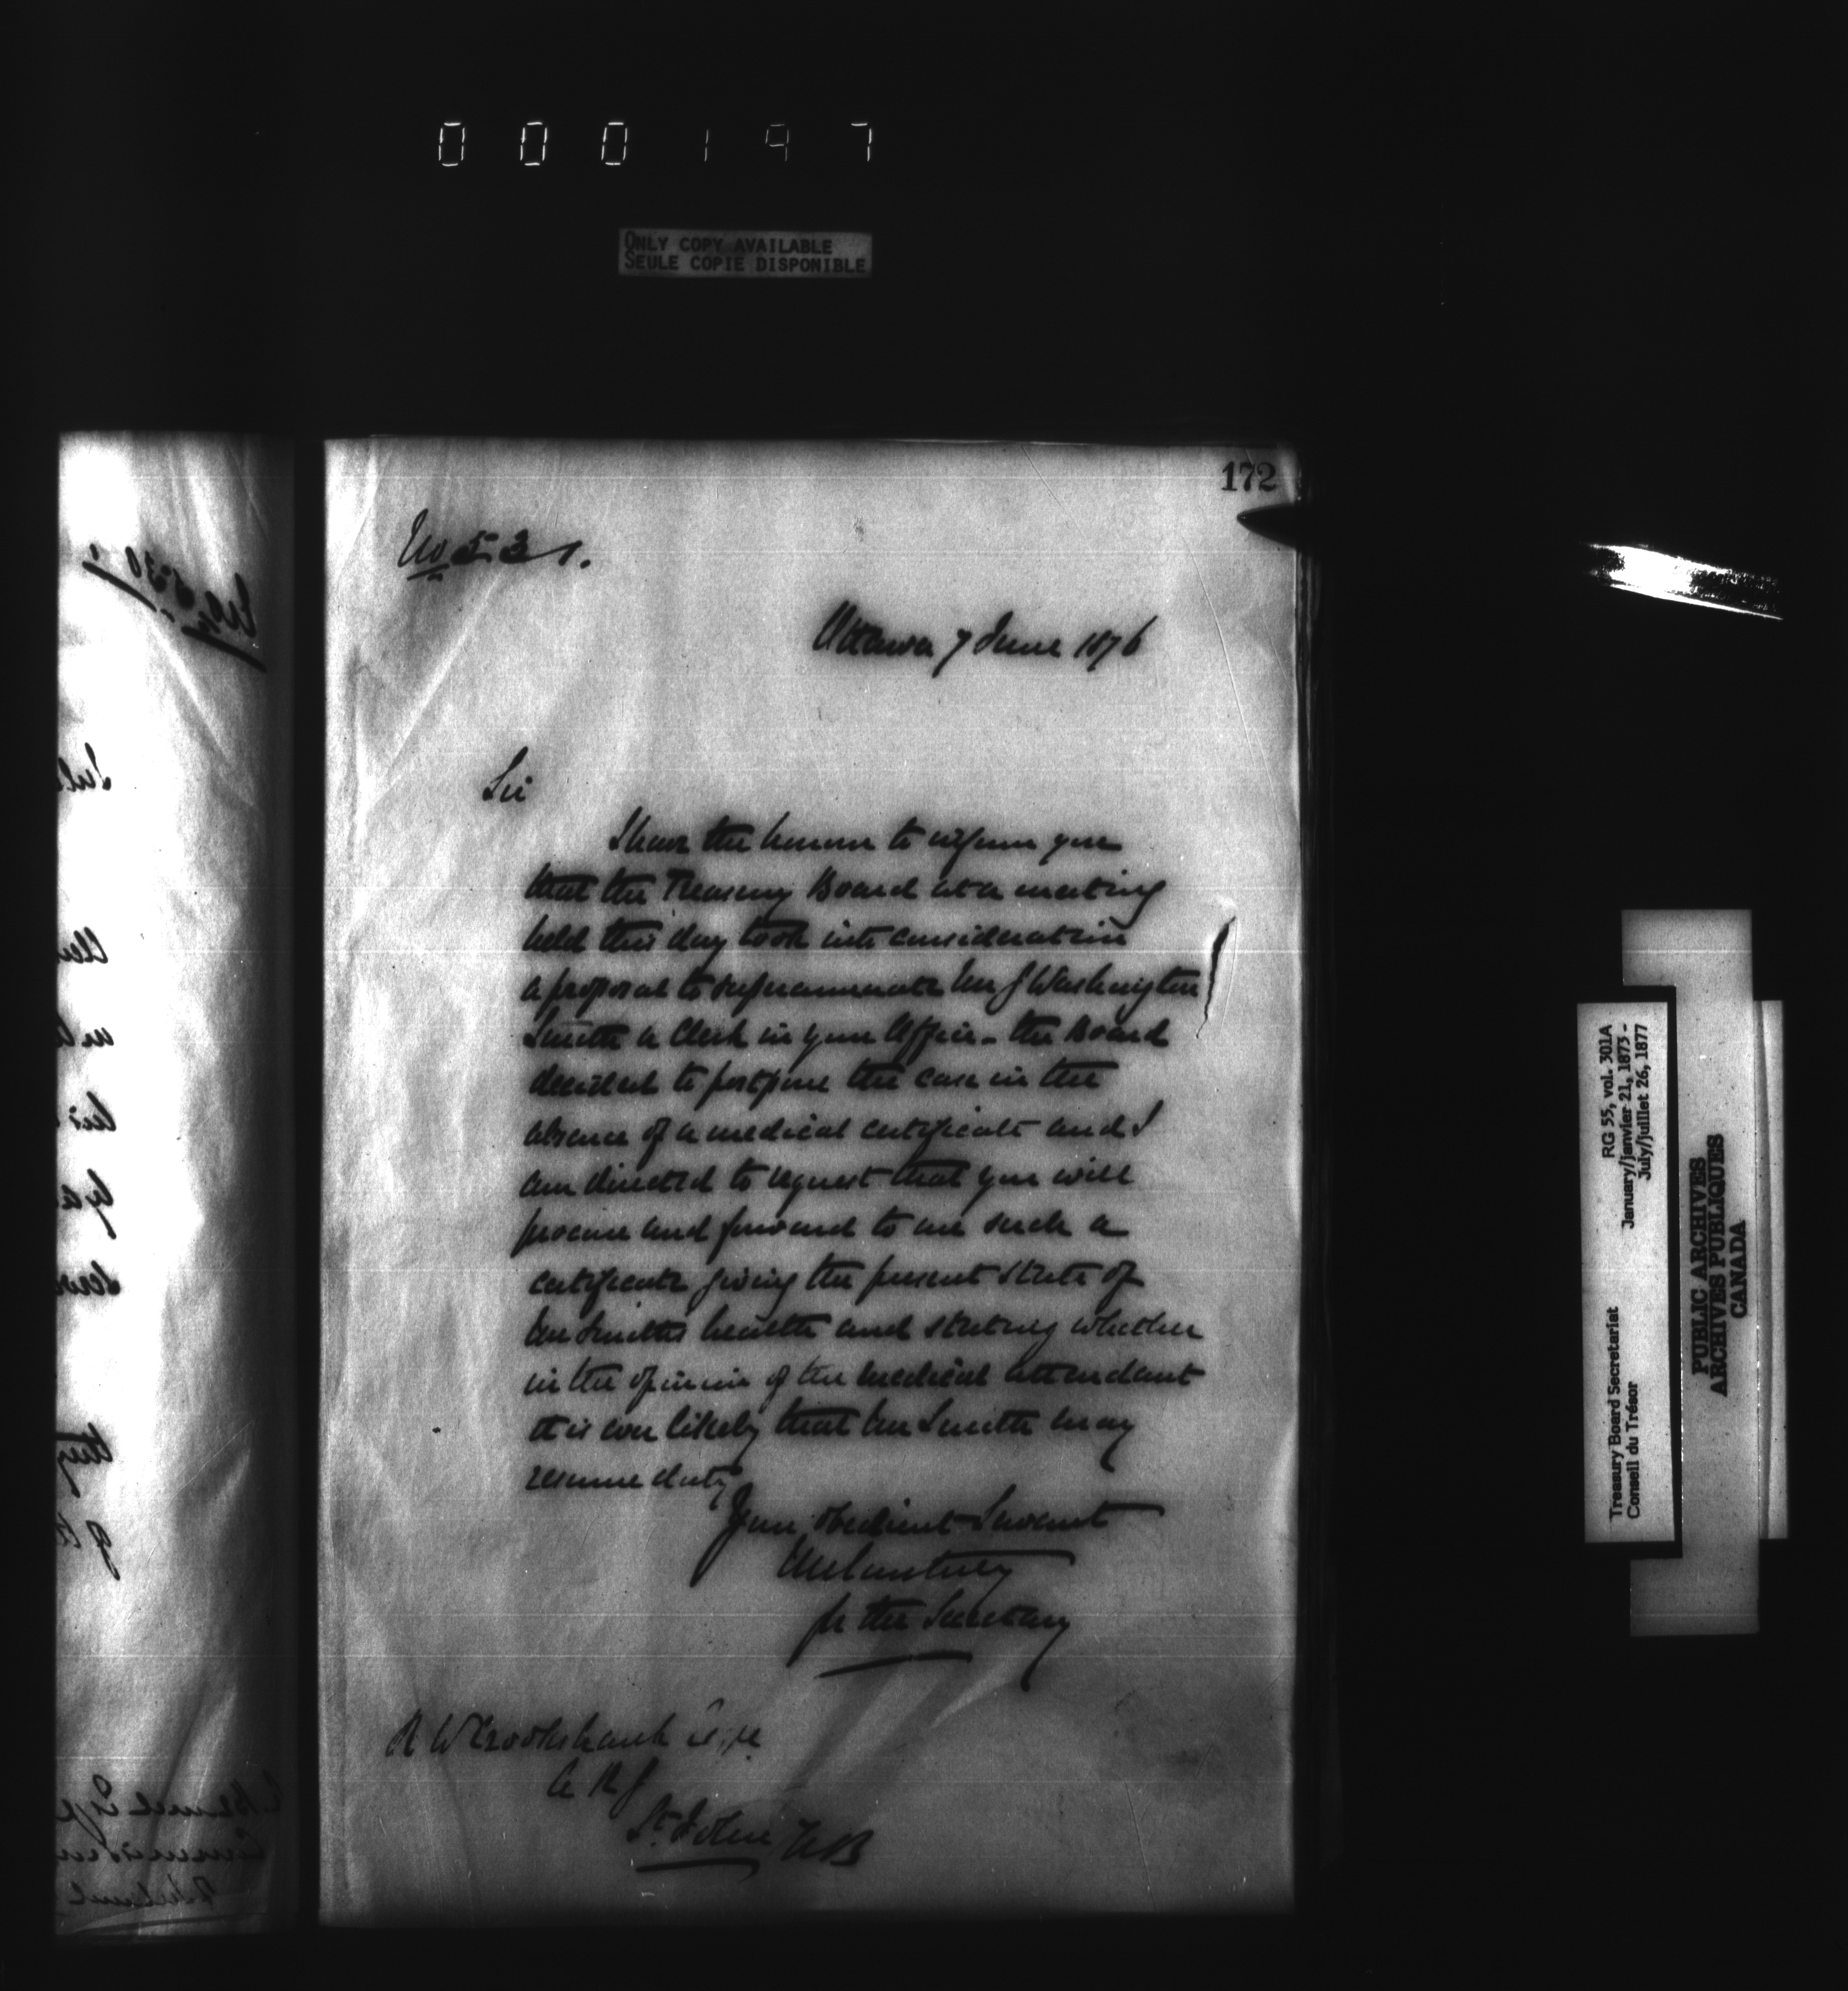 000197
ONLY COPY AVAILABLE
SEULE COPIE DISPONIBLE
172
No 531.
Ottawa 7 June 1876
Sir
I have the honor to inform you
that the Treasury Board at a meeting
held this day took into consideration
a proposal to superannuate Mr J Washington
Smith a Clerk in your Office - the Board
decided to postpone the case in the
absence of a medical certificate and I
am directed to request that you will
procure and forward to me such a
certificate giving the present state of
Mr Smiths health and stating whether
in the opinion of the medical attendant
it is likely that Mr Smith may
resume duty
Your obedient Servant
for the Secretary
R W Crookshank Esqre
St John NB
RG 55, vol. 301A
January/janvier 21, 1873 -
July/juillet 26, 1877
Treasury Board Secretariat
Conseil du Trésor
PUBLIC ARCHIVES
ARCHIVES PUBLIQUES
CANADA